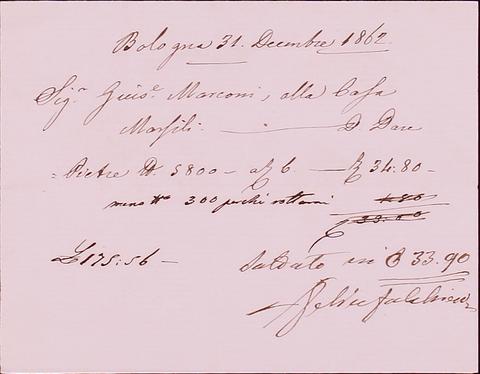 Bologna 31. Decembre 1862
Sig.r Guis.e Marconi, alla Casa
Marsili. — D Dare
= Pietre 5800 — a 6. — 34:80 —
meno 300 perchè rottami 1.80
33.00
£ 175:56 — Saldato in 33.90
Felice